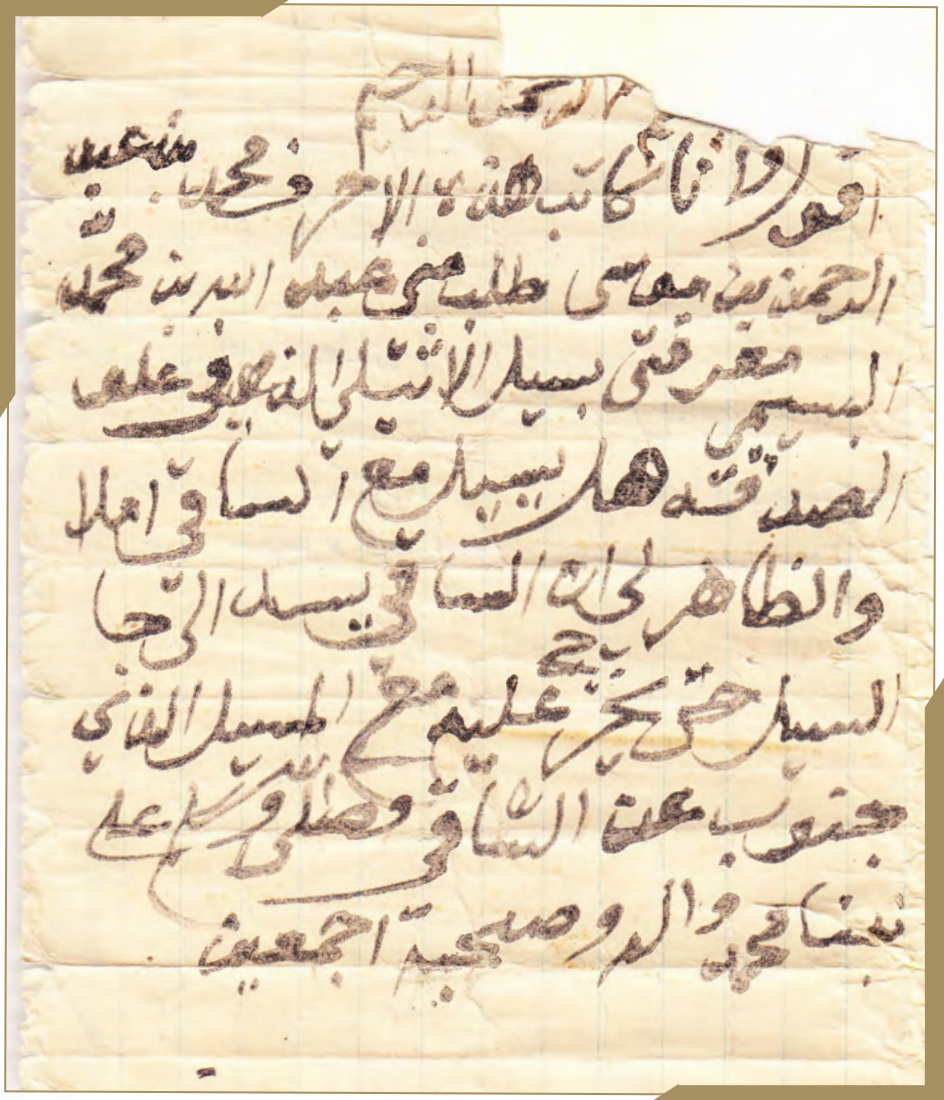 الرحمن الرحيم
اقول وانا كاتب هذه الاحرف محمد بن عبد
الرحمن بن موسى طلب مني عبد الله بن محمد
البسيمي معرفتي بسيل الاثيلي الذي في على
الصدقه هل يسيل مع الساقي املا
والظاهر لي ان الساقي يسد الى جا
السيل حتى يحجر عليه مع المسيل الذي
جنوب عن الساقي وصلى الله وسلم على
نبينا محمد واله وصحبه اجمعين